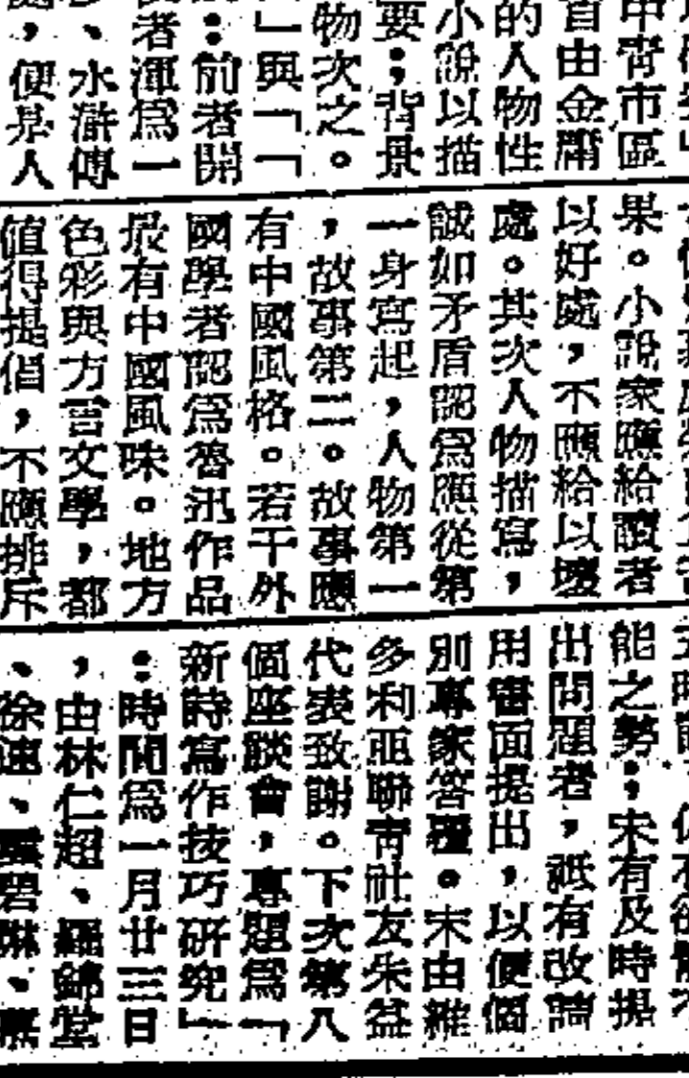 中青市區
首由金庸
的人物性
小說以描
要；背景
物次之。
」與「「
：前者開
者渾爲一
、水滸傳
，便是人
果。小說家應給讀者
以好處，不應給以壞
處。其次人物描寫，
誠如矛盾認爲應從第
一身寫起，人物第一
，故事第二。故事應
有中國風格。若干外
國學者認爲魯迅作品
最有中國風味。地方
色彩與方言文學，都
值得提倡，不應排斥
能之勢；未有及時提
出問題者，祇有改請
用書面提出，以便個
別專家答覆。末由維
多利亞聯青社友朱益
代表致謝。下次第八
個座談會，專題爲「
新詩寫作技巧研究」
：時間爲一月廿三日
，由林仁超、羅錦堂
、徐速、碧琳、